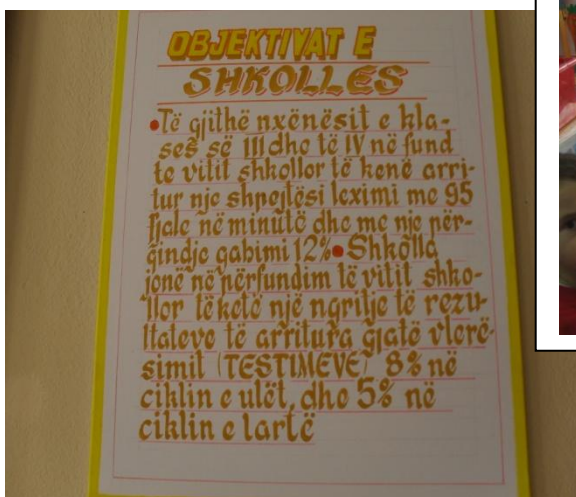 OBJEKTIVAT E
SHKOLLES
•Të gjithë nxënësit e kla-
ses së III dhe të IV në fund
te vitit shkollor të kenë arri-
tur nje shpejtësi leximi me 95
fjale në minutë dhe me nje për-
qindje gabimi 12%•Shkolla
jonë në përfundim të vitit shko-
llor të ketë një ngritje të rezu-
ltateve të arritura gjatë vlerë-
simit (TESTIMEVE) 8% në
ciklin e ulët, dhe 5% në
ciklin e lartë